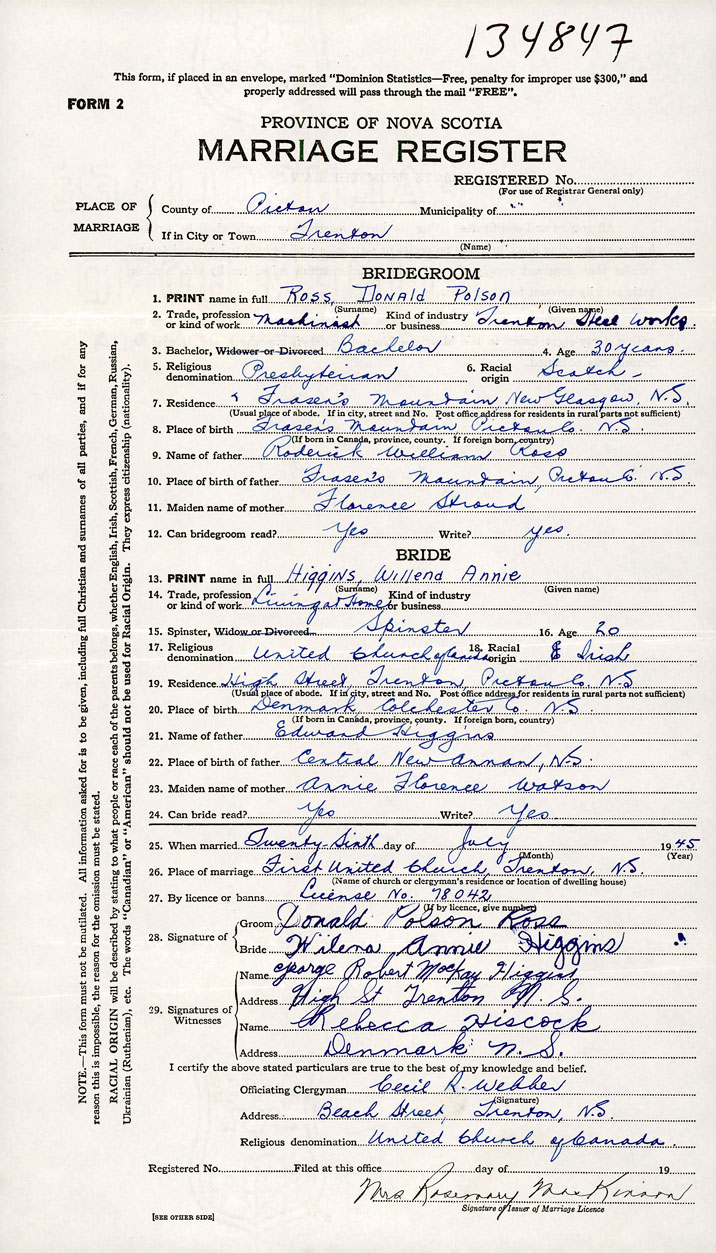 134847
This form, if placed in an envelope, marked "Dominion Statistics—Free, penalty for improper use $300," and
properly addressed will pass through the mail "FREE".
FORM 2
PROVINCE OF NOVA SCOTIA
MARRIAGE REGISTER
REGISTERED No.
(For use of Registrar General only)
PLACE OF MARRIAGE
County of Pictou Municipality of " "
If in City or Town Trenton
(Name)
BRIDEGROOM
1. PRINT name in full Ross, Donald Polson
(Surname) (Given name)
2. Trade, profession or kind of work Machinist Kind of industry or business Trenton Steel Works.
3. Bachelor, Widower or Divorced Bachelor 4. Age 30 years.
5. Religious denomination Presbyterian 6. Racial origin Scotch -
7. Residence Fraser's Mountain, New Glasgow, N.S.
(Usual place of abode. If in city, street and No. Post office address for residents in rural parts not sufficient)
8. Place of birth Fraser's Mountain Pictou Co. N.S.
(If born in Canada, province, county. If foreign born, country)
9. Name of father Roderick William Ross
10. Place of birth of father Fraser's Mountain, Pictou Co. N.S.
11. Maiden name of mother Florence Stroud
12. Can bridegroom read? Yes Write? yes.
BRIDE
13. PRINT name in full Higgins, Willena Annie
(Surname) (Given name)
14. Trade, profession or kind of work Living at Home Kind of industry or business
15. Spinster, Widow or Divorced Spinster 16. Age 20
17. Religious denomination United Church of Canada 18. Racial origin Irish
19. Residence High Street, Trenton, Pictou Co. N.S
(Usual place of abode. If in city, street and No. Post office address for residents in rural parts not sufficient)
20. Place of birth Denmark Colchester Co. N.S.
(If born in Canada, province, county. If foreign born, country)
21. Name of father Edward Higgins
22. Place of birth of father Central New Annan, N.S.
23. Maiden name of mother Annie Florence Watson
24. Can bride read? Yes Write? Yes.
25. When married Twenty-Sixth day of July 1945
(Month) (Year)
26. Place of marriage First United Church, Trenton, N.S.
(Name of church or clergyman's residence or location of dwelling house)
27. By licence or banns License No. 78042
(If by licence, give number)
28. Signature of
Groom Donald Polson Ross
Bride Wilena Annie Higgins
29. Signatures of Witnesses
Name George Robert MacKay Higgins
Address High St Trenton N.S.
Name Rebecca Hiscock
Address Denmark N.S.
I certify the above stated particulars are true to the best of my knowledge and belief.
Officiating Clergyman Cecil R. Webber
(Signature)
Address Beach Street, Trenton, N.S.
Religious denomination United Church of Canada.
Registered No. Filed at this office day of 19
Mrs Rosemary MacKinnon
Signature of Issuer of Marriage Licence
[SEE OTHER SIDE]
NOTE.—This form must not be mutilated. All information asked for is to be given, including full Christian and surnames of all parties, and if for any
reason this is impossible, the reason for the omission must be stated.
RACIAL ORIGIN will be described by stating to what people or race each of the parents belongs, whether English, Irish, Scottish, French, German, Russian,
Ukrainian (Ruthenian), etc. The words "Canadian" or "American" should not be used for Racial Origin. They express citizenship (nationality).